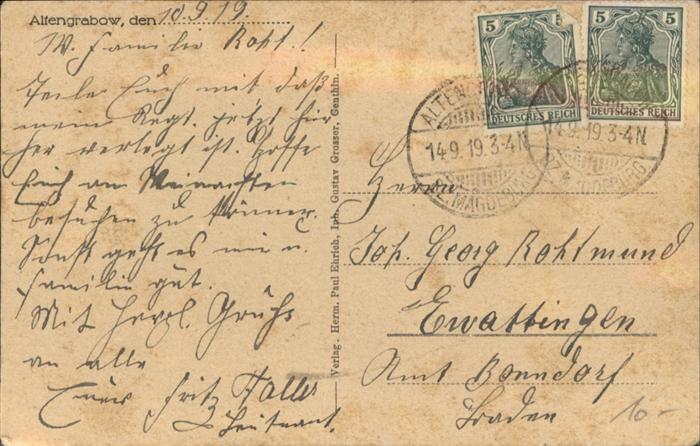 Altengrabow, den 10.9.19.
W. Familie Roht.!
Teile Euch mit daß
mein Regt. jetzt hier
her verlegt ist. Hoffe
Euch an Weinachten
besuchen zu können.
Sonst geht es mir u.
Familie gut.
Mit herzl. Grüße
an alle
Euer Fritz Haller
Leutnant.
Verlag. Herm. Paul Ehrich, Inh. Gustav Grosser, Genthin.
5 5
DEUTSCHES REICH
5 5
DEUTSCHES REICH
14.9.19.3-4N
BZ. MAGDEBURG
14.9.19.3-4N
Herrn
Joh. Georg Rohtmund
Ewattingen
Amt Bonndorf
Baden
10-